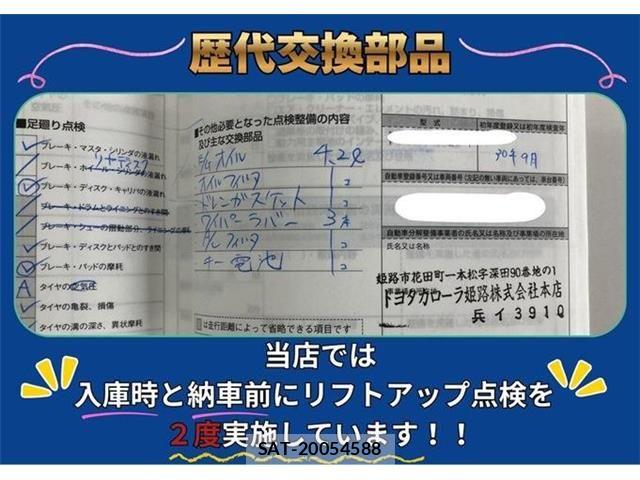 歴代交換部品
■足廻り点検
ブレーキ・マスタ・シリンダの液漏れ
リヤディスク
ブレーキ・ホイール・シリンダの液漏れ
ブレーキ・ディスク・キャリパの液漏れ
ブレーキ・ドラムとライニングとのすき間
ブレーキ・シューの摺動部分、ライニングの摩耗
ブレーキ・ディスクとパッドとのすき間
ブレーキ・パッドの摩耗
タイヤの空気圧
タイヤの亀裂、損傷
タイヤの溝の深さ、異状摩耗
■その他必要となった点検整備の内容
及び主な交換部品
E/gオイル 4.2ℓ
オイルフィルタ 1コ
ドレンガスケット 1コ
ワイパーラバー 3本
A/Cフィルタ 1コ
キー電池 1コ
は走行距離によって省略できる項目です
型式
初年度登録又は初年度検査年
30年9月
自動車登録番号又は車両番号(左記の無い車両にあっては、車台番号)
自動車分解整備事業者の氏名又は名称及び事業場の所在地
氏名又は名称
姫路市花田町一本松字深田90番地の1
トヨタカローラ姫路株式会社本店
兵イ3910
当店では
入庫時と納車前にリフトアップ点検を
2度実施しています!!
SAT-20054588